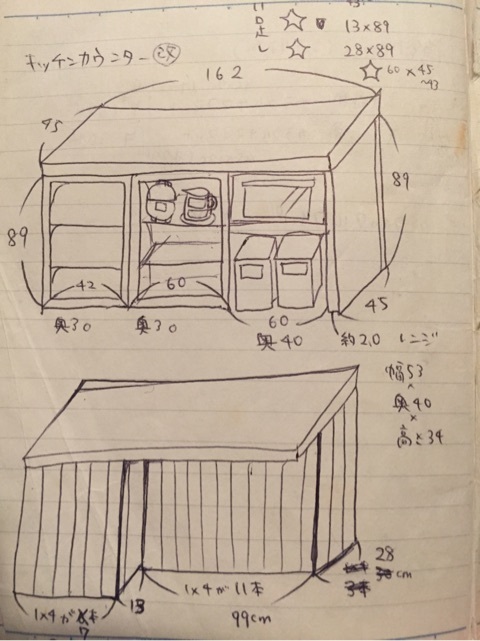 ロ
足
し
☆ 13×89
☆ 28×89
☆ 60×45
~43
キッチンカウンター 改
162
45
89
89
42
60
60
45
奥30
奥30
奥40
約2.0
レンジ
幅53
×
奥40
×
高さ34
1×4が
本
7
13
1×4が11本
99cm
28
cm